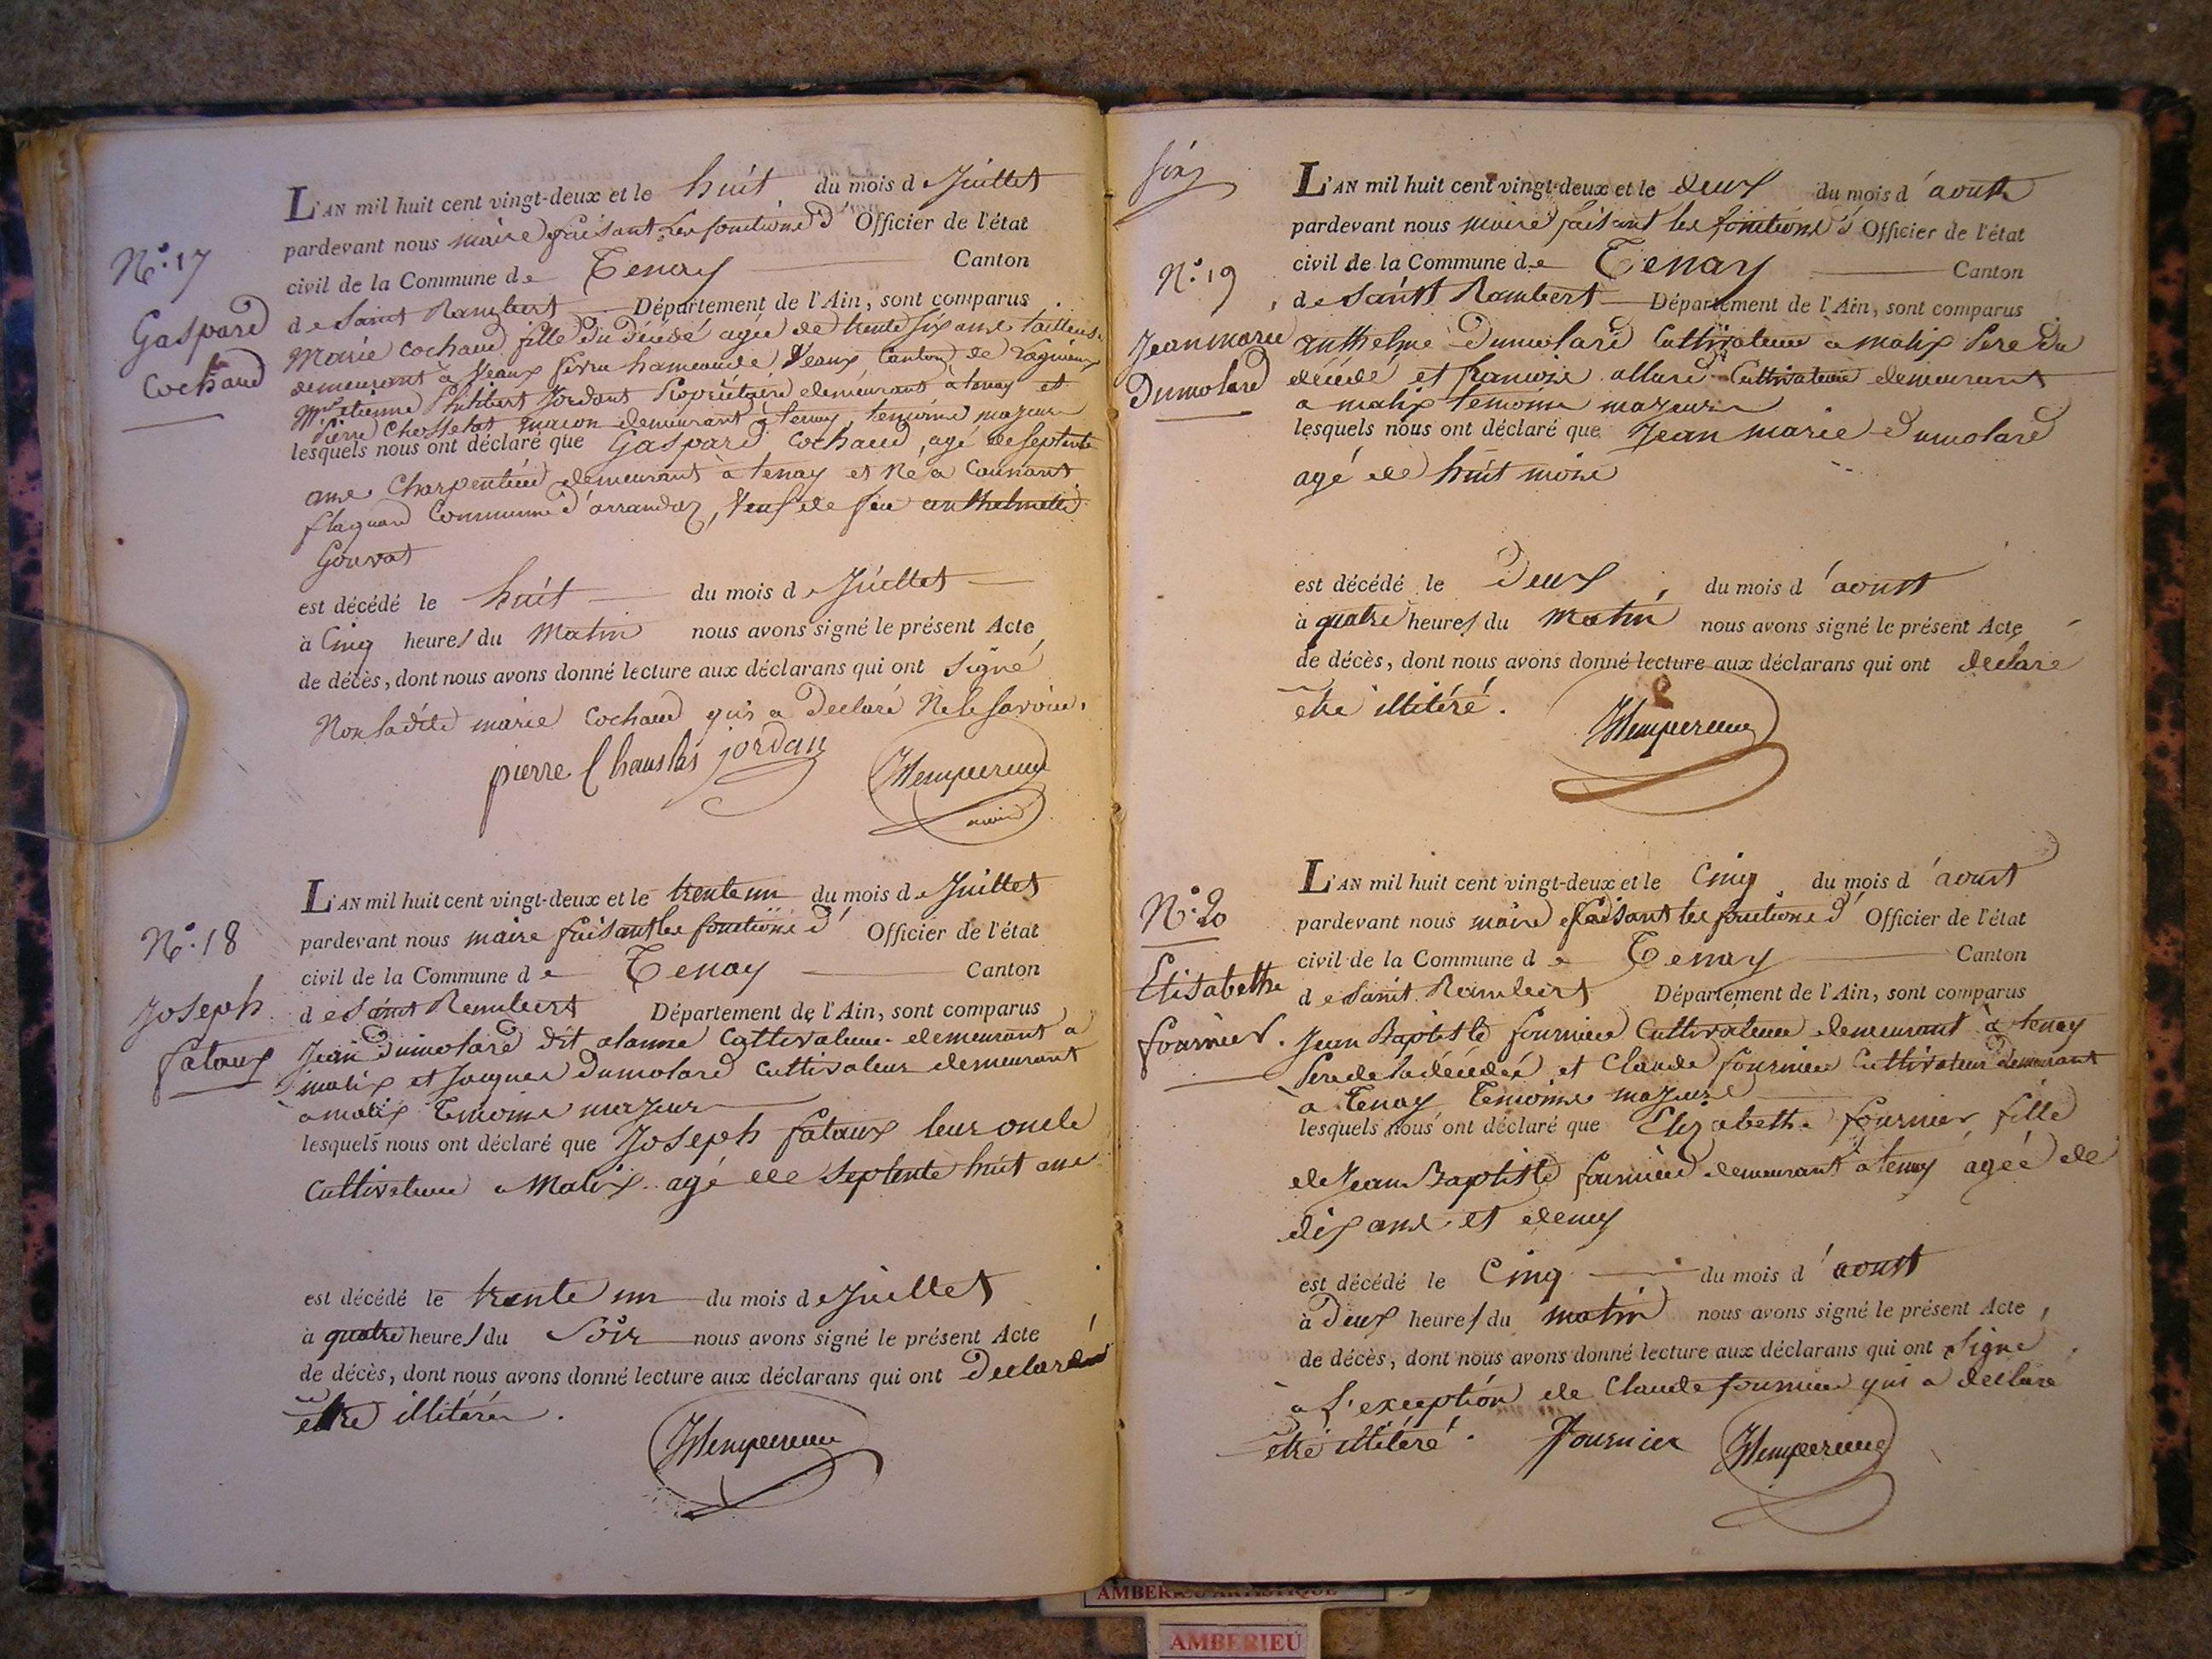 N° 17
Gaspard
Cochaud
L'AN mil huit cent vingt-deux et le huit du mois de Juillet
pardevant nous maire faisant les fonctions d' Officier de l'état
civil de la Commune de Tenay Canton
de Saint Rambert Département de l'Ain, sont comparus
Marie Cochaud fille du décédé agée de trente six ans tailleuse
demeurant à Veaux Canton de Lagnieux
Etienne Philibert Jordant Propriétaire demeurant à tenay et
Pierre Chosselat macon demeurant à tenay temoins majeurs
lesquels nous ont déclaré que Gaspard Cochaud, agé de septente
ans Charpentier demeurant à tenay et Né a Counant
flaquard Commune d'arrandaz, Veuf de feu anthelmette
Gouvat
est décédé le huit du mois de Juillet
à Cinq heures du Matin nous avons signé le présent Acte
de décès, dont nous avons donné lecture aux déclarans qui ont Signé
Non ladite marie Cochaud qui a Declaré Ne le Savoir.
pierre Chauslas jordan
N° 18
Joseph
fataux
L'AN mil huit cent vingt-deux et le trente un du mois de Juillet
pardevant nous maire faisant les fonctions d' Officier de l'état
civil de la Commune de Tenay Canton
de Saint Rembert Département de l'Ain, sont comparus
Jean Dumolard dit alanne Cultivateur demeurant a
malix et Jacques Dumolard Cultivateur demeurant
a malix Temoins majeurs
lesquels nous ont déclaré que Joseph fataux leur oncle
Cultivateur a Malix agé de septente huit ans
est décédé le trente un du mois de Juillet
à quatre heures du Soir nous avons signé le présent Acte
de décès, dont nous avons donné lecture aux déclarans qui ont Declaré
etre illitérés.
N° 19
Jean marie
Dumolard
L'AN mil huit cent vingt-deux et le deux du mois d'aoust
pardevant nous maire faisant les fonctions d' Officier de l'état
civil de la Commune de Tenay Canton
de Saint Rambert Département de l'Ain, sont comparus
anthelme Dumolard Cultivateur a malix Pere du
décédé et francois allard Cultivateur demeurant
a malix temoins majeurs
lesquels nous ont déclaré que Jean marie Dumolard
agé de huit mois
est décédé le Deux du mois d'aoust
à quatre heures du Matin nous avons signé le présent Acte
de décès, dont nous avons donné lecture aux déclarans qui ont declaré
etre illitéré.
N° 20
Elisabethe
fournier.
L'AN mil huit cent vingt-deux et le Cinq du mois d'aoust
pardevant nous maire faisant les fonctions d' Officier de l'état
civil de la Commune de Tenay Canton
de Saint Rambert Département de l'Ain, sont comparus
Jean Baptiste fournier Cultivateur demeurant à tenay
Pere de la décédée et Claude fournier Cultivateur demeurant
à Tenay Temoins majeurs
lesquels nous ont déclaré que Elizabethe fournier fille
de Jean Baptiste fournier demeurant a tenay agée de
dix ans et demy
est décédé le Cinq du mois d'aoust
à Deux heures du matin nous avons signé le présent Acte
de décès, dont nous avons donné lecture aux déclarans qui ont Signé
a L'exception de Claude fournier qui a déclaré
etre illitéré. Fournier
AMBERIEU ARTISTIQUE
AMBERIEU